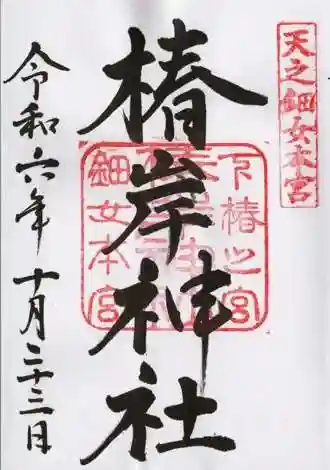 天之鈿女本宮
椿岸神社
下椿之宮
鈿女本宮
令和六年十月二十三日